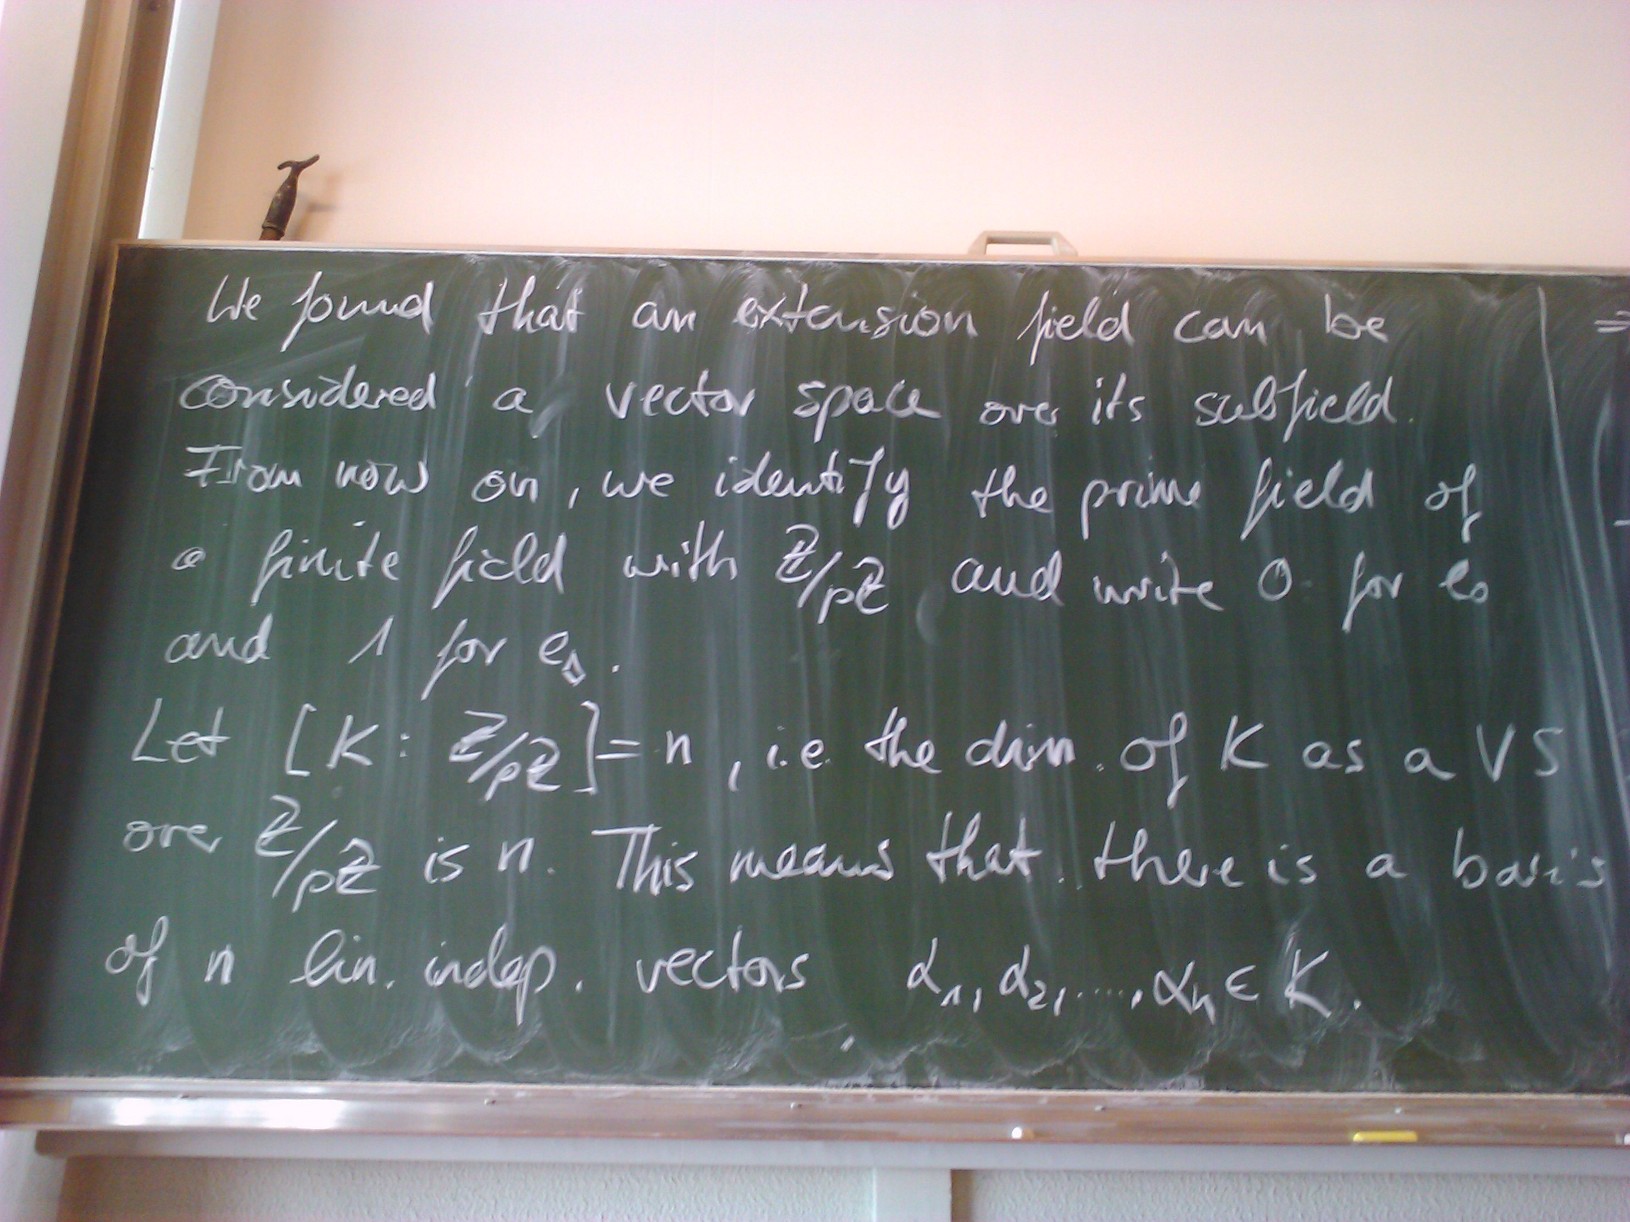 We found that an extension field can be
considered a vector space over its subfield.
From now on, we identify the prime field of
a finite field with ℤ/pℤ and write 0 for e₀
and 1 for e₁.
Let [K : ℤ/pℤ] = n, i.e. the dim. of K as a VS
over ℤ/pℤ is n. This means that there is a basis
of n lin. indep. vectors α₁, α₂, ..., αₙ ∈ K.